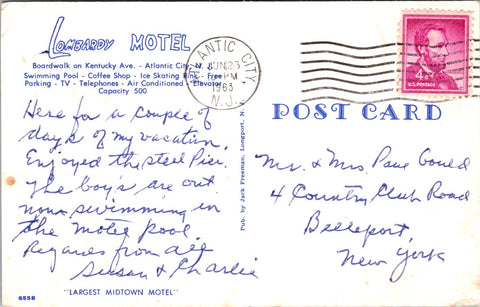 LOMBARDY MOTEL
Boardwalk on Kentucky Ave. - Atlantic City, N. J.
Swimming Pool - Coffee Shop - Ice Skating Rink - Free
Parking - TV - Telephones - Air Conditioned - Elevator
Capacity 500
ATLANTIC CITY,
JUN 25
PM
1963
N.J.
4¢
U.S. POSTAGE
POST CARD
Here for a couple of
days of my vacation.
Enjoyed the steel Pier.
The boys are out
now swimming in
the motel pool.
Regards from all
Susan & Charlie
Pub. by Jack Freeman, Longport, N. J.
Mr. & Mrs Paul Gould
4 Country Club Road
Bellport,
New York
6558
"LARGEST MIDTOWN MOTEL"